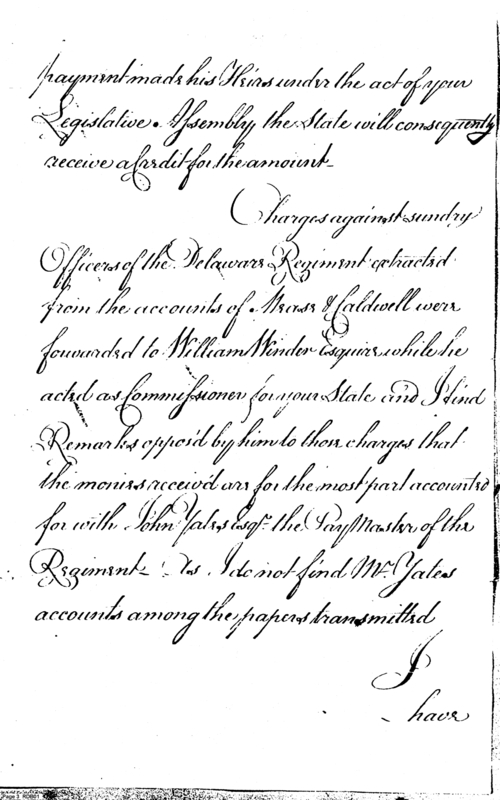 payment made his Heirs under the act of your
Legislative Assembly the State will consequently
receive a Credit for the amount_
Charges against sundry
Officers of the Delaware Regiment extracted
from the accounts of Mease & Caldwell were
forwarded to William Winder Esquire while he
acted as Commissioner for your State and I find
Remarks oppos'd by him to those charges that
the monies receiv'd are for the most part accounted
for with John Yates Esqr. the PayMaster of the
Regiment_ As I do not find Mr. Yates
accounts among the papers transmitted
I
have